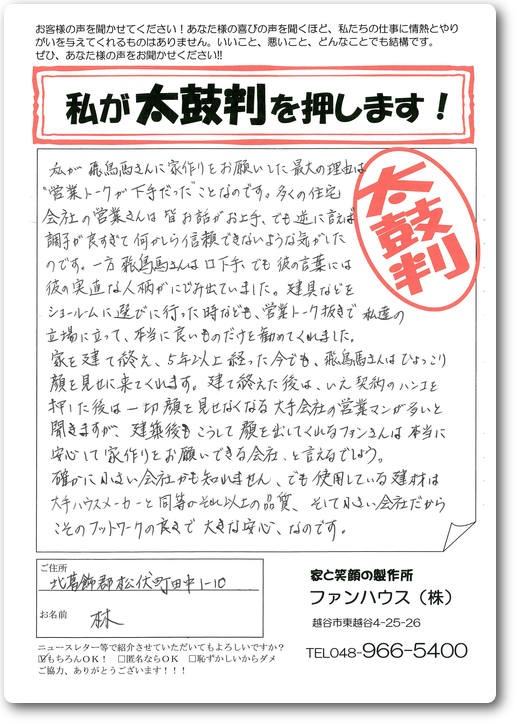 お客様の声を聞かせてください！あなた様の喜びの声を聞くほど、私たちの仕事に情熱とやり
がいを与えてくれるものはありません。いいこと、悪いこと、どんなことでも結構です。
ぜひ、あなた様の声をお聞かせください!!
私が太鼓判を押します！
私が飛鳥馬さんに家作りをお願いした最大の理由は
"営業トークが下手だった"ことなのです。多くの住宅
会社の営業さんは皆お話がお上手、でも逆に言えば
調子が良すぎて何かしら信頼できないような気がした
のです。一方飛鳥馬さんは口下手、でも彼の言葉には
彼の実直な人柄がにじみ出ていました。建具などを
ショールームに選びに行った時なども、営業トーク抜きで私達の
立場に立って、本当に良いものだけを勧めてくれました。
家を建て終え、5年以上経った今でも、飛鳥馬さんはひょっこり
顔を見せに来てくれます。建て終えた後は、いえ契約のハンコを
押した後は一切顔を見せなくなる大手会社の営業マンが多いと
聞きますが、建築後もこうして顔を出してくれるファンさんは本当に
安心して家作りをお願いできる会社、と言えるでしょう。
確かに小さい会社かも知れません、でも使用している建材は
大手ハウスメーカーと同等かそれ以上の品質、そして小さい会社だから
こそのフットワークの良さで大きな安心、なのです。
太鼓判
ご住所
北葛飾郡松伏町田中1-10
お名前
林
ニュースレター等で紹介させていただいてもよろしいですか？
☑もちろんOK！ □匿名ならOK □恥ずかしいからダメ
ご協力、ありがとうございます！！！
家と笑顔の製作所
ファンハウス（株）
越谷市東越谷4-25-26
TEL048-966-5400